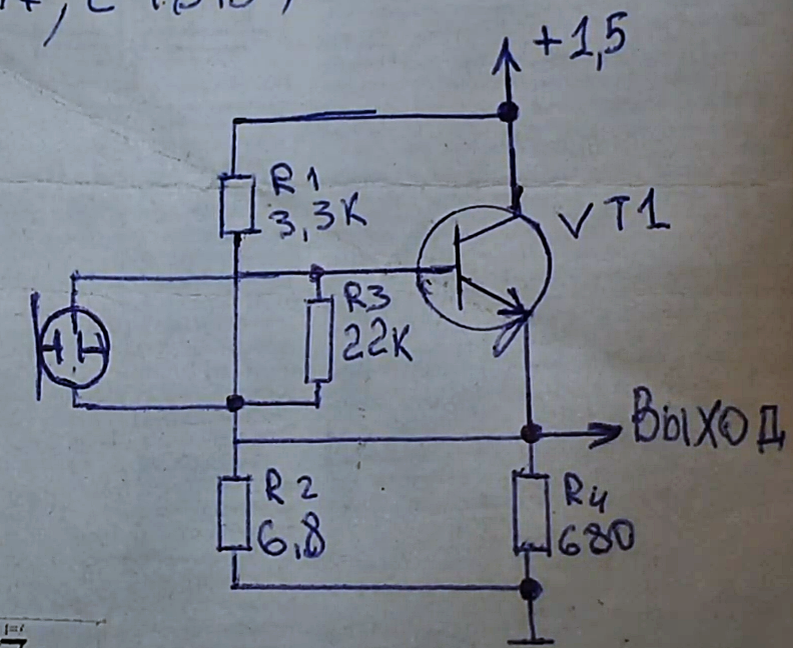 +1,5
R1
3,3К
VT1
R3
22К
Выход
R2
6,8
R4
680